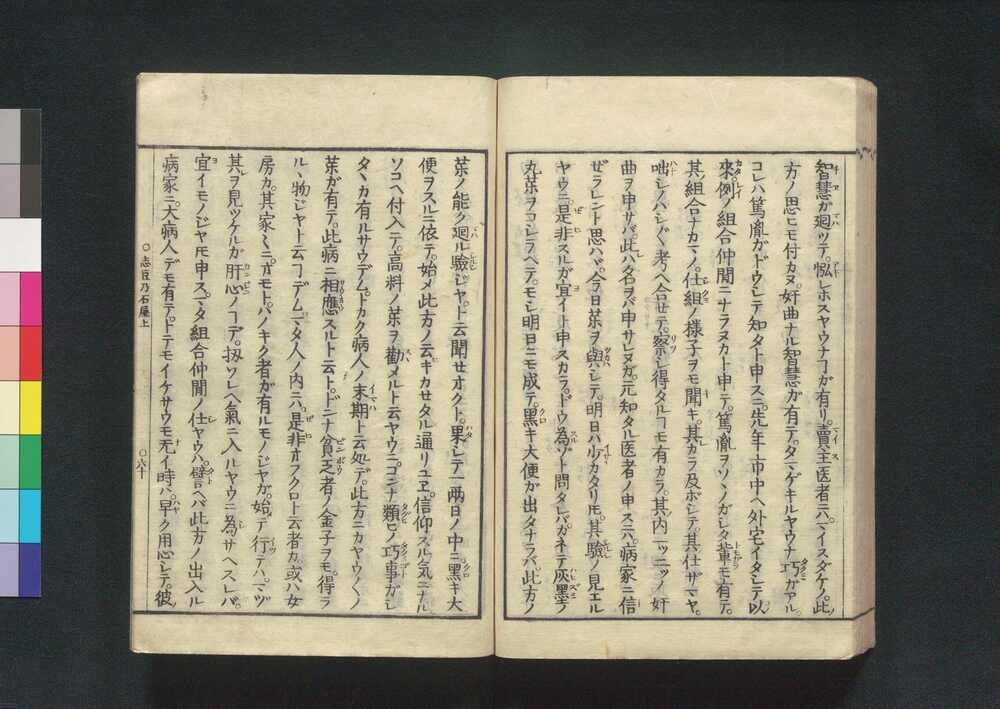 智慧ガ廻ツテ。愍レホスヤウナヿガ有リ。賣主医者ニハ。マイスダケノ。此ノ
方ノ思ヒモ付カヌ。奸曲ナル智慧ガ有テ。タマゲキルヤウナ巧ガアル。
コレハ篤胤ガドウシテ知タト申スニ。先年。市中ヘ外宅イタシテ以
來。例ノ組合仲間ニナラヌカト申テ。篤胤ヲソヽノカシタ輩モ有テ。
其ノ組合ナカマノ。仕組ノ様子ヲモ聞キ。其カラ及ボシテ。其仕ザマヤ。
咄シノハシバシ考ヘ合セテ。察シ得タルコモ有カラ。其内一ツニツノ奸
曲ヲ申サバ。此ハ名ヲバ申サレヌガ。元知タル医者ノ申スニハ。病家ニ信
ゼラレント思ハヾ。今日藥ヲ與シテ。明日ハ少カタリ𪜈。其驗ノ見エル
ヤウニ。是非スルガヨイト申スカラ。ドウ為ゾト問タレバ。カネテ灰墨ノ
丸藥ヲコシラヘテ。モシ明日ニモ成テ。黒キ大便ガ出タナラバ。此方ノ
藥ノ能ク廻ル驗ジヤ。ト云聞セオクト。果シテ一両日ノ中ニ。黒キ大
便ヲスルニ依テ。始メ此方ノ云キカセタル通リユヱ。信仰スル気ニナル
ソコヘ付入テ。高料ノ藥ヲ勸メルト云ヤウニ。コンナ類ヒノ巧事ガシ
タヽカ有ルサウデム。トカク病人ノ末期ト云処デ。此方ニカヤウ〳〵ノ
藥ガ有テ。此病ニ相應スルト云ト。ドンナ貧乏者ノ金子ヲモ。得ラ
ルヽ物ジヤト云ヿデム。マタ人ノ内ニハ。是非オフクロト云者カ。或ハ女
房カ。其家〳〵ニ。オモトパノキク者ガ有ルモノジヤガ。始デ行テハ。マヅ
其ヲ見ツケルガ肝心ノヿデ。扨ソレヘ氣ニ入ルヤウニ為サヘスレバ。
宜イモノジヤモ申ス。マタ組合仲間ノ仕ヤウハ。譬ヘバ此方ノ出入ル
病家ニ。大病人デモ有テ。トテモイケサウモ无イ時ハ。早ク用心シテ。彼ノ
○志豆乃石屋上
○六十